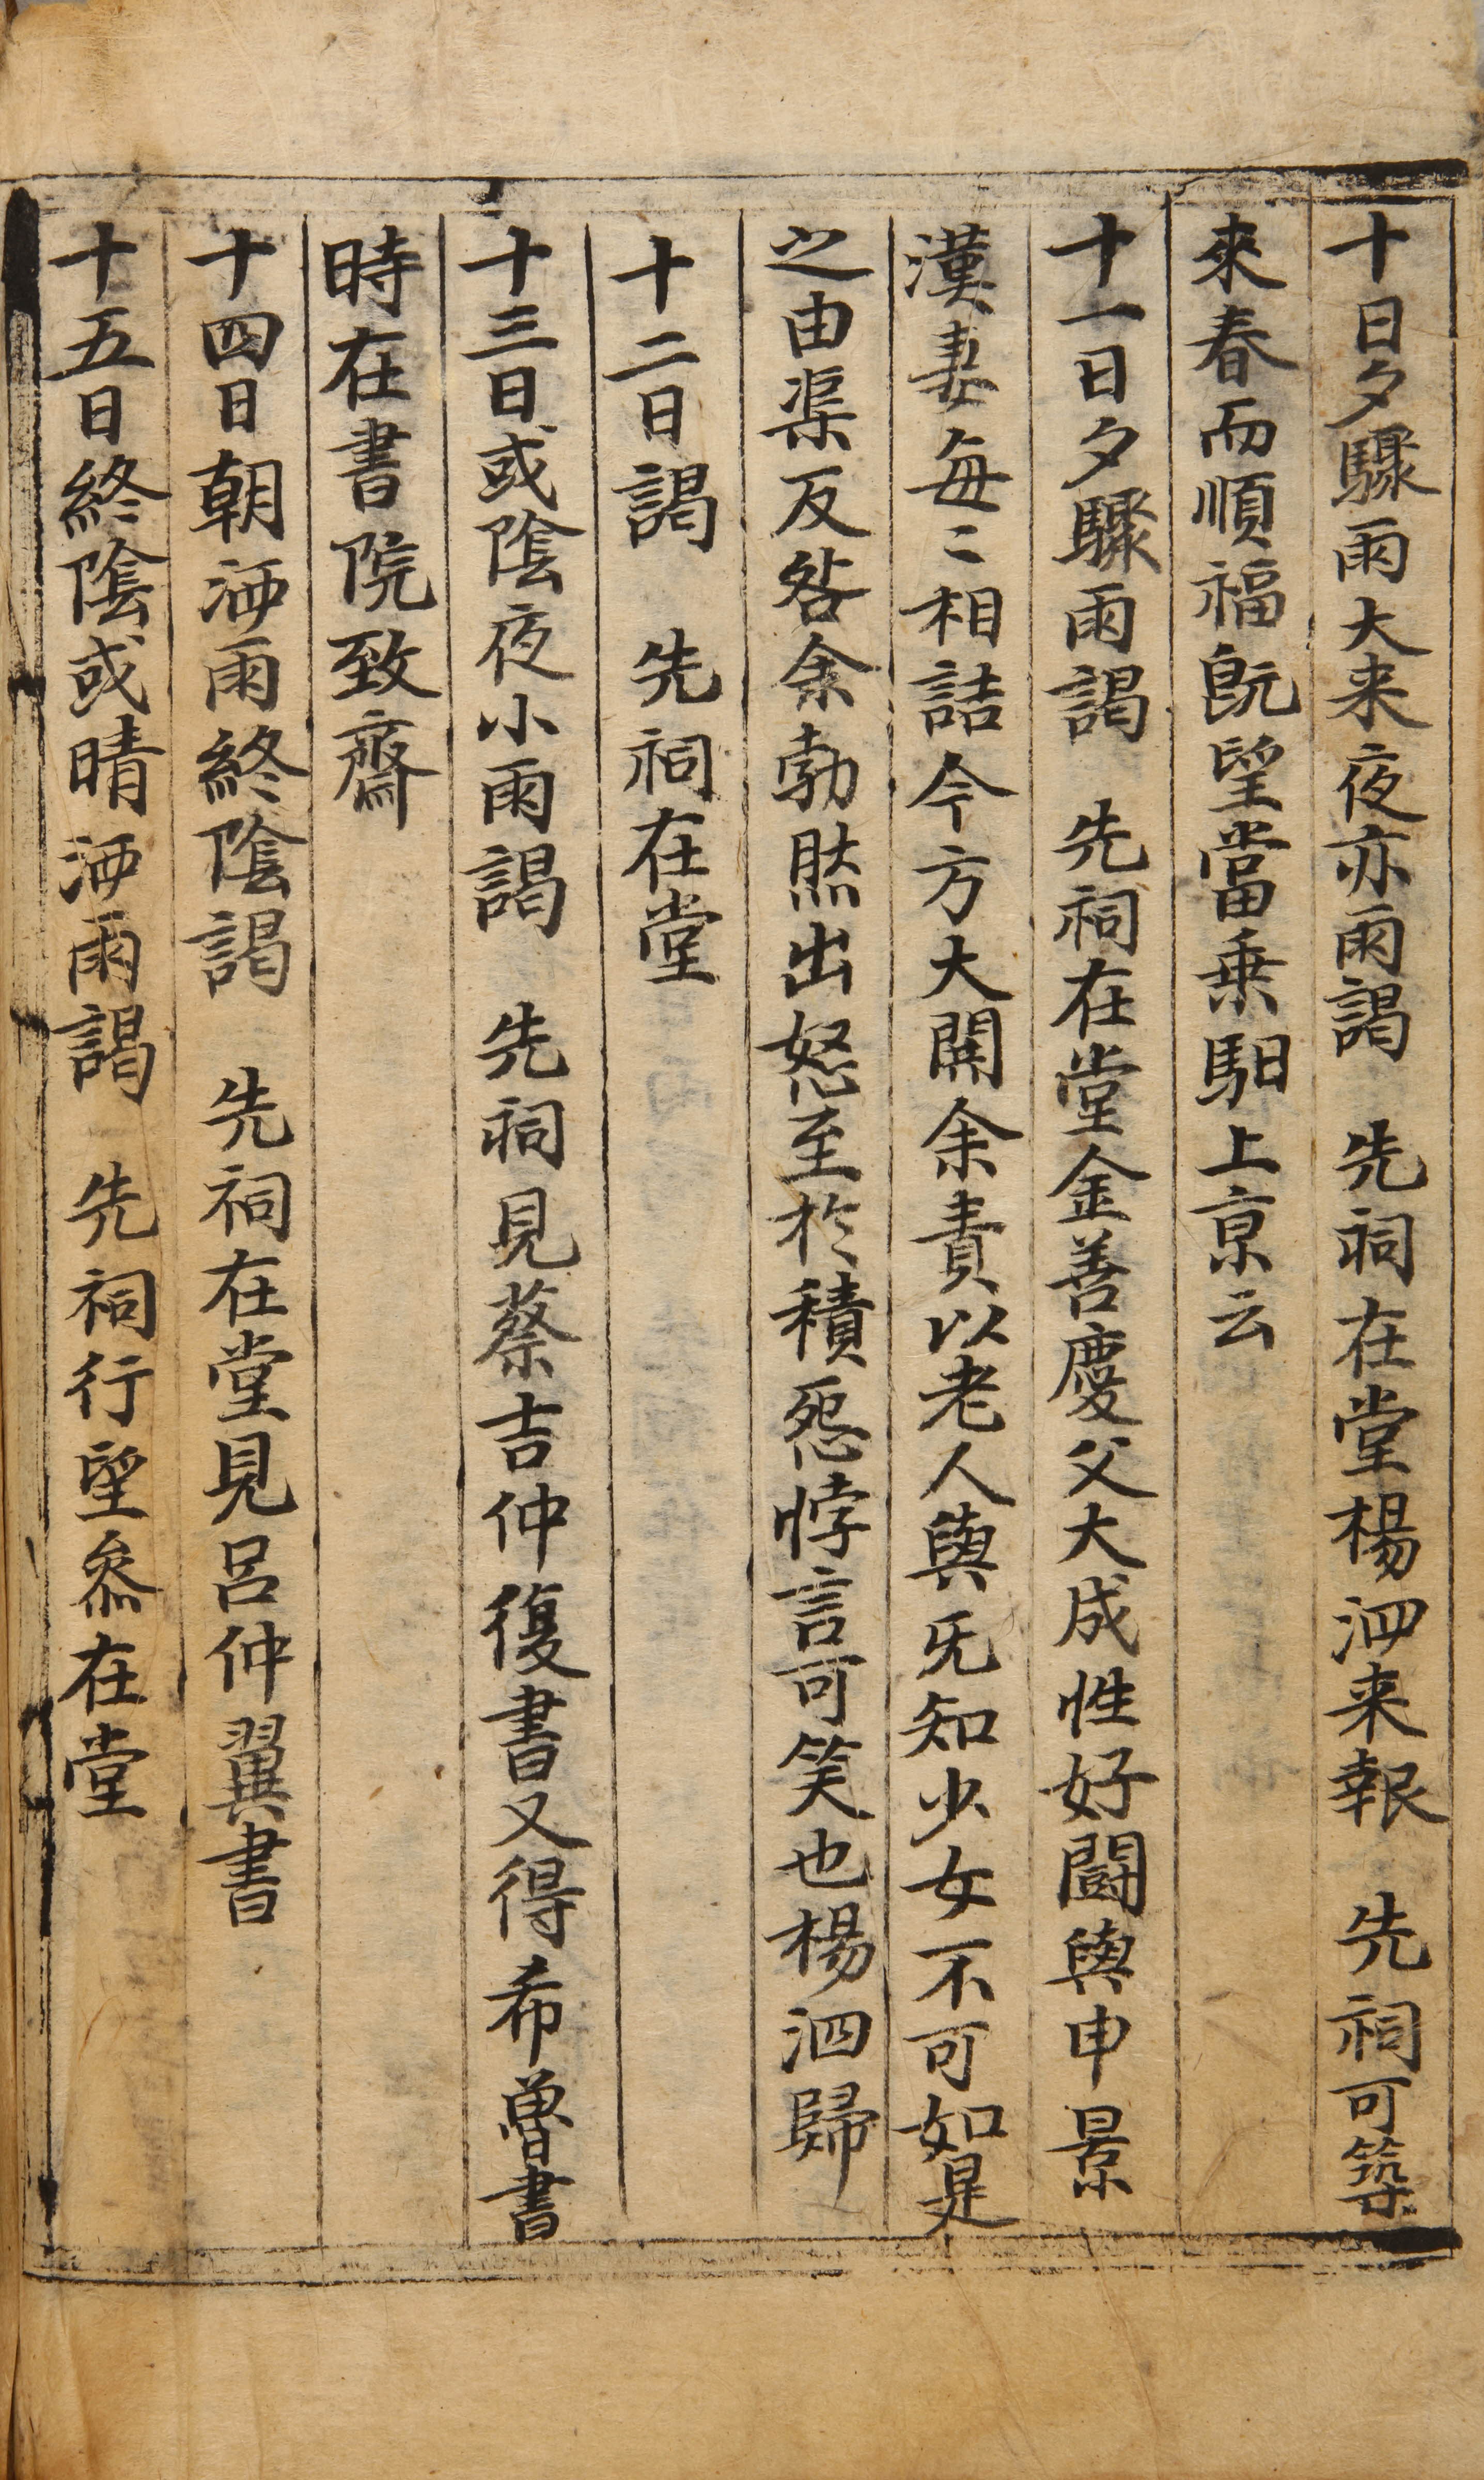 十日夕驟雨大来夜亦雨謁 先祠在堂楊泗来報 先祠可築
來春而順福旣望當乗馹上京云
十一日夕驟雨謁 先祠在堂金善慶父大成性好鬪與申景
漢妻每〻相詰今方大鬨余責以老人與旡知少女不可如是
之由渠反咎余勃然出怒至於積怨悖言可笑也楊泗歸
十二日謁 先祠在堂
十三日或陰夜小雨謁 先祠見蔡吉仲復書又得希曾書
時在書院致齋
十四日朝洒雨終陰謁 先祠在堂見呂仲翼書
十五日終陰或晴洒雨謁 先祠行望叅在堂